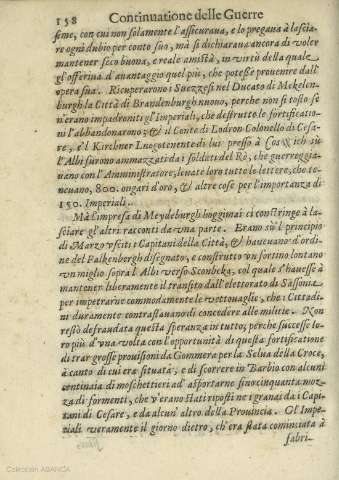 158 Continuatione delle Guerre
seme, con cui non solamente l'assicuraua, e lo pregaua à lascia-
re ogni dubio per conto suo, ma si dichiaraua ancora di voler
mantener seco buona, e reale amistà, in virtù della quale
gl'offeriua d'auantaggio quel più, che potesse prouenire dall'
opera sua. Ricuperarono i Suezzesi nel Ducato di Mekelen-
burgh la Città di Brandenburgh nuouo, perche non sì tosto se
n'erano impadroniti gl'Imperiali, che destrutte le fortificatio-
ni l'abbandonarono; & il Conte di Lodron Colonello di Cesa-
re, e'l Kirchner Luogotenente di lui presso à Cosswich su
l'Albi furono ammazzati da i soldati del Rè, che guerreggia-
uano con l'Amministratore, leuate loro tutte le lettere, che te-
neuano, 800. ongari d'oro, & altre cose per l'importanza di
150. Imperiali.
Mà l'impresa di Meydeburgh hoggimai ci constringe à la-
sciare gl'altri racconti da vna parte. Erano sù'l principio
di Marzo vsciti i Capitani della Città, & haueuano d'ordi-
ne del Falkenbergh disegnato, e construtto vn fortino lontano
vn miglio sopra l'Albi verso Sconbeka, col quale s'hauesse à
mantener liberamente il transito dall'elettorato di Sassonia
per impetrarne commodamente le vettouaglie, che i Cittadi-
ni duramente contrastauano di concedere alle militie. Non
restò defraudata questa speranza in tutto, perche successe lo-
ro più d'vna volta con l'opportunità di questa fortificatione
di trar grosse prouisioni da Gommera per la Selua della Croce,
à canto di cui era situata, e di scorrere in Barbio con alcuni
centinaia di moschettieri ad'asportarne sino cinquanta moz-
za di formenti, che v'erano stati riposti ne i granai da i Capi-
tani di Cesare, e da alcun'altro della Prouincia. Gl'Impe-
riali veramente il giorno dietro, ch'era stata cominciata à
fabri-
Colección ABANCA